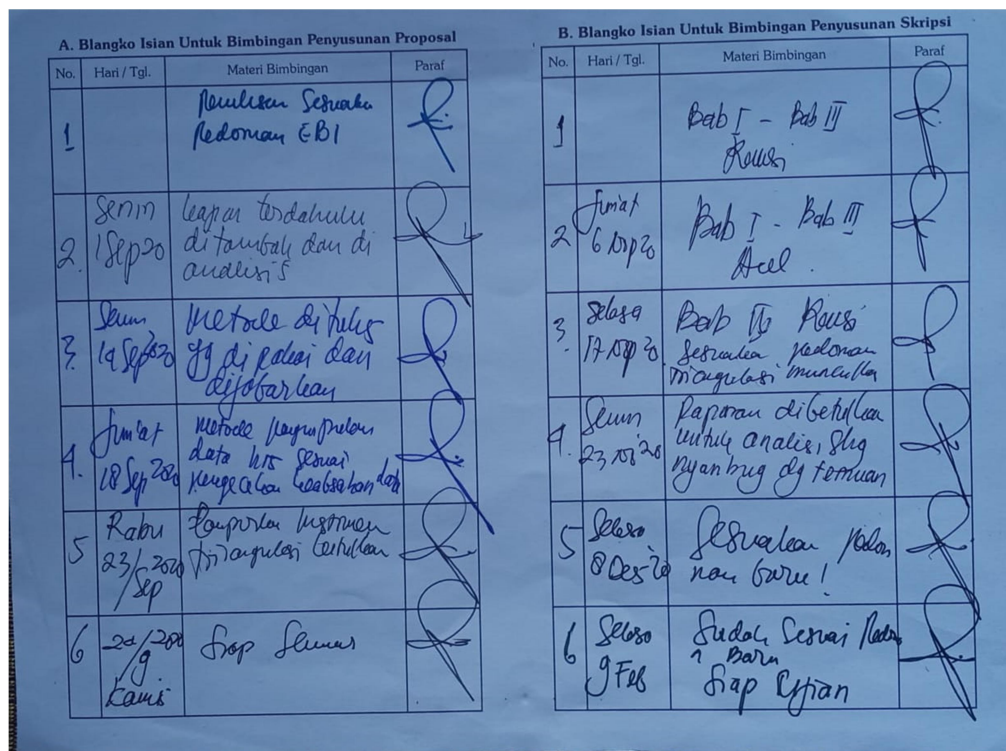 A. Blangko Isian Untuk Bimbingan Penyusunan Proposal
No. Hari / Tgl. Materi Bimbingan Paraf
1
Penulisan Sesuaikan
Pedoman EBI
2.
Senin
1 Sep 20
kajian terdahulu
ditambah dan di
analisis
3.
Senin
Sep 2020
Metode ditulis
yg di pakai dan
dijabarkan
4.
Jum'at
18 Sep 2020
Metode pengumpulan
data hrs sesuai
pengecekan keabsahan data
5
Rabu
23/ 2020
Sep
Instrumen
triangulasi betulkan
6
Kamis
Siap
B. Blangko Isian Untuk Bimbingan Penyusunan Skripsi
No. Hari / Tgl. Materi Bimbingan Paraf
1
Bab I - Bab III
Revisi
2
Jum'at
6 20
Bab I - Bab III
Acc.
3.
Selasa
17 20
Bab Revisi
sesuaikan pedoman
triangulasi munculkan
4.
Senin
23 20
Paparan dibetulkan
untuk analisis, shg
nyambung dg temuan
5
Selasa
8 Des 20
Sesuaikan pedo
man baru!
6
Selasa
9 Feb
Sudah Sesuai Pedom
Baru
Siap Ujian